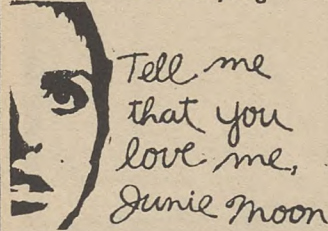 Tell me
that you
love me,
Junie Moon